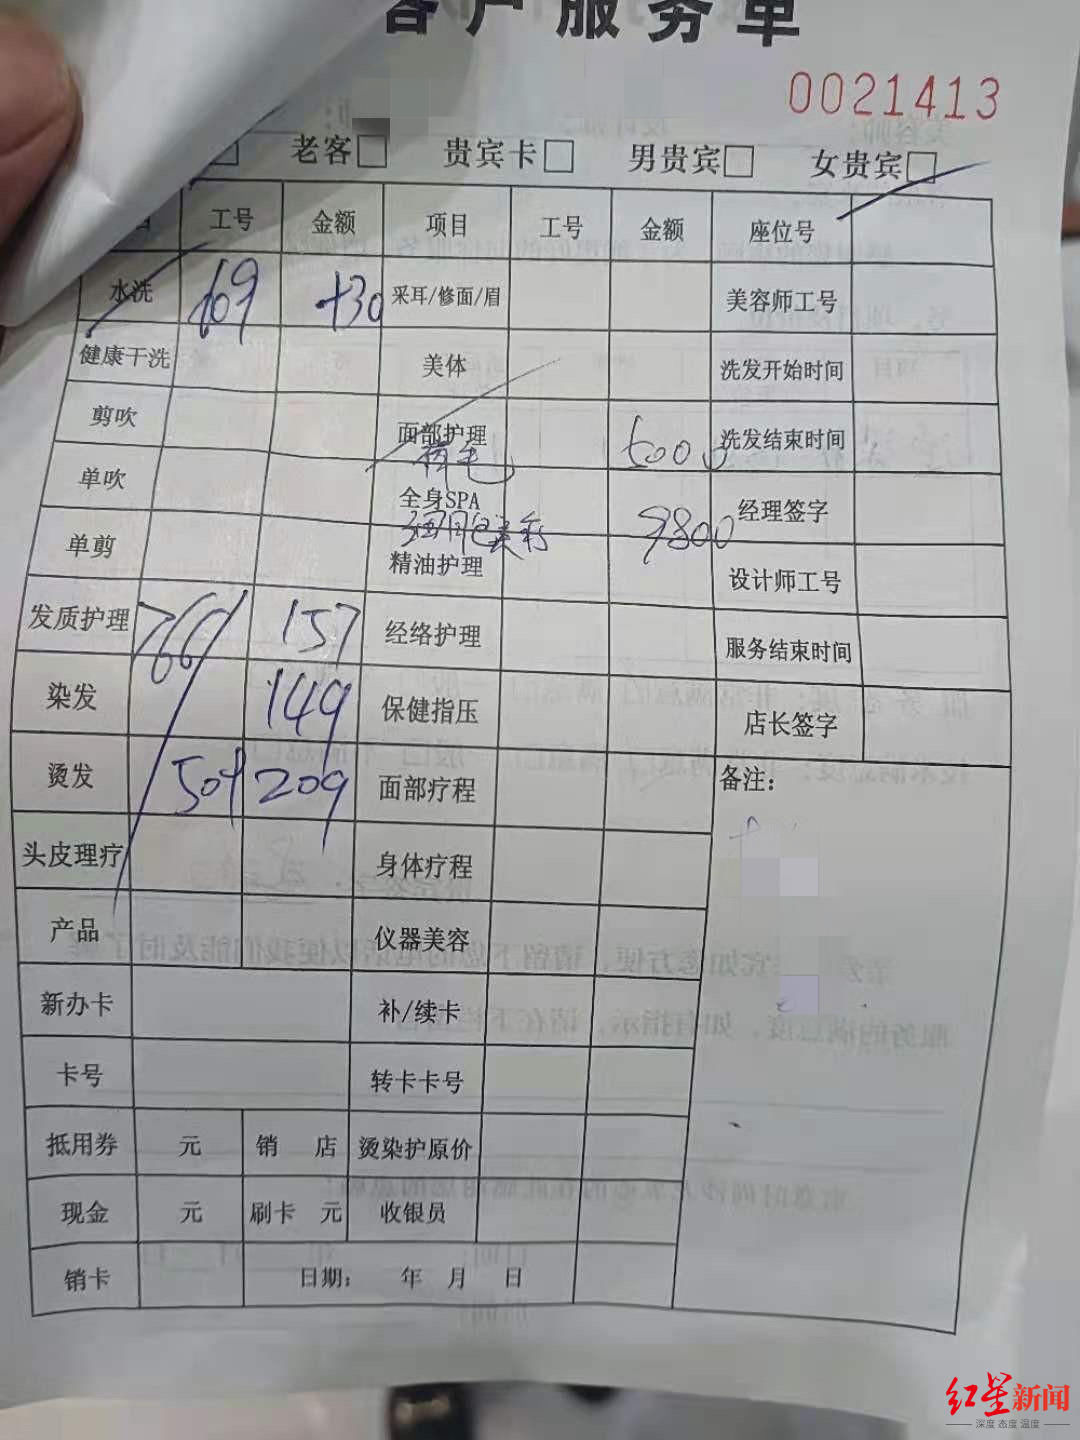 客户服务单
0021413
老客 贵宾卡 男贵宾 女贵宾
工号 金额 项目 工号 金额 座位号
水洗 +30 采耳/修面/眉 美容师工号
健康干洗 美体 洗发开始时间
剪吹 面部护理 5000 洗发结束时间
单吹 全身SPA 经理签字
9800
单剪 精油护理 设计师工号
发质护理 157 经络护理 服务结束时间
染发 149 保健指压 店长签字
烫发 509 209 面部疗程 备注：
头皮理疗 身体疗程
产品 仪器美容
新办卡 补/续卡
卡号 转卡卡号
抵用券 元 销 店 烫染护原价
现金 元 刷卡 元 收银员
销卡 日期： 年 月 日
红星新闻
深度 态度 温度